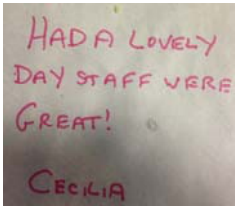 HAD A LOVELY
DAY STAFF WERE
GREAT!
CECILIA